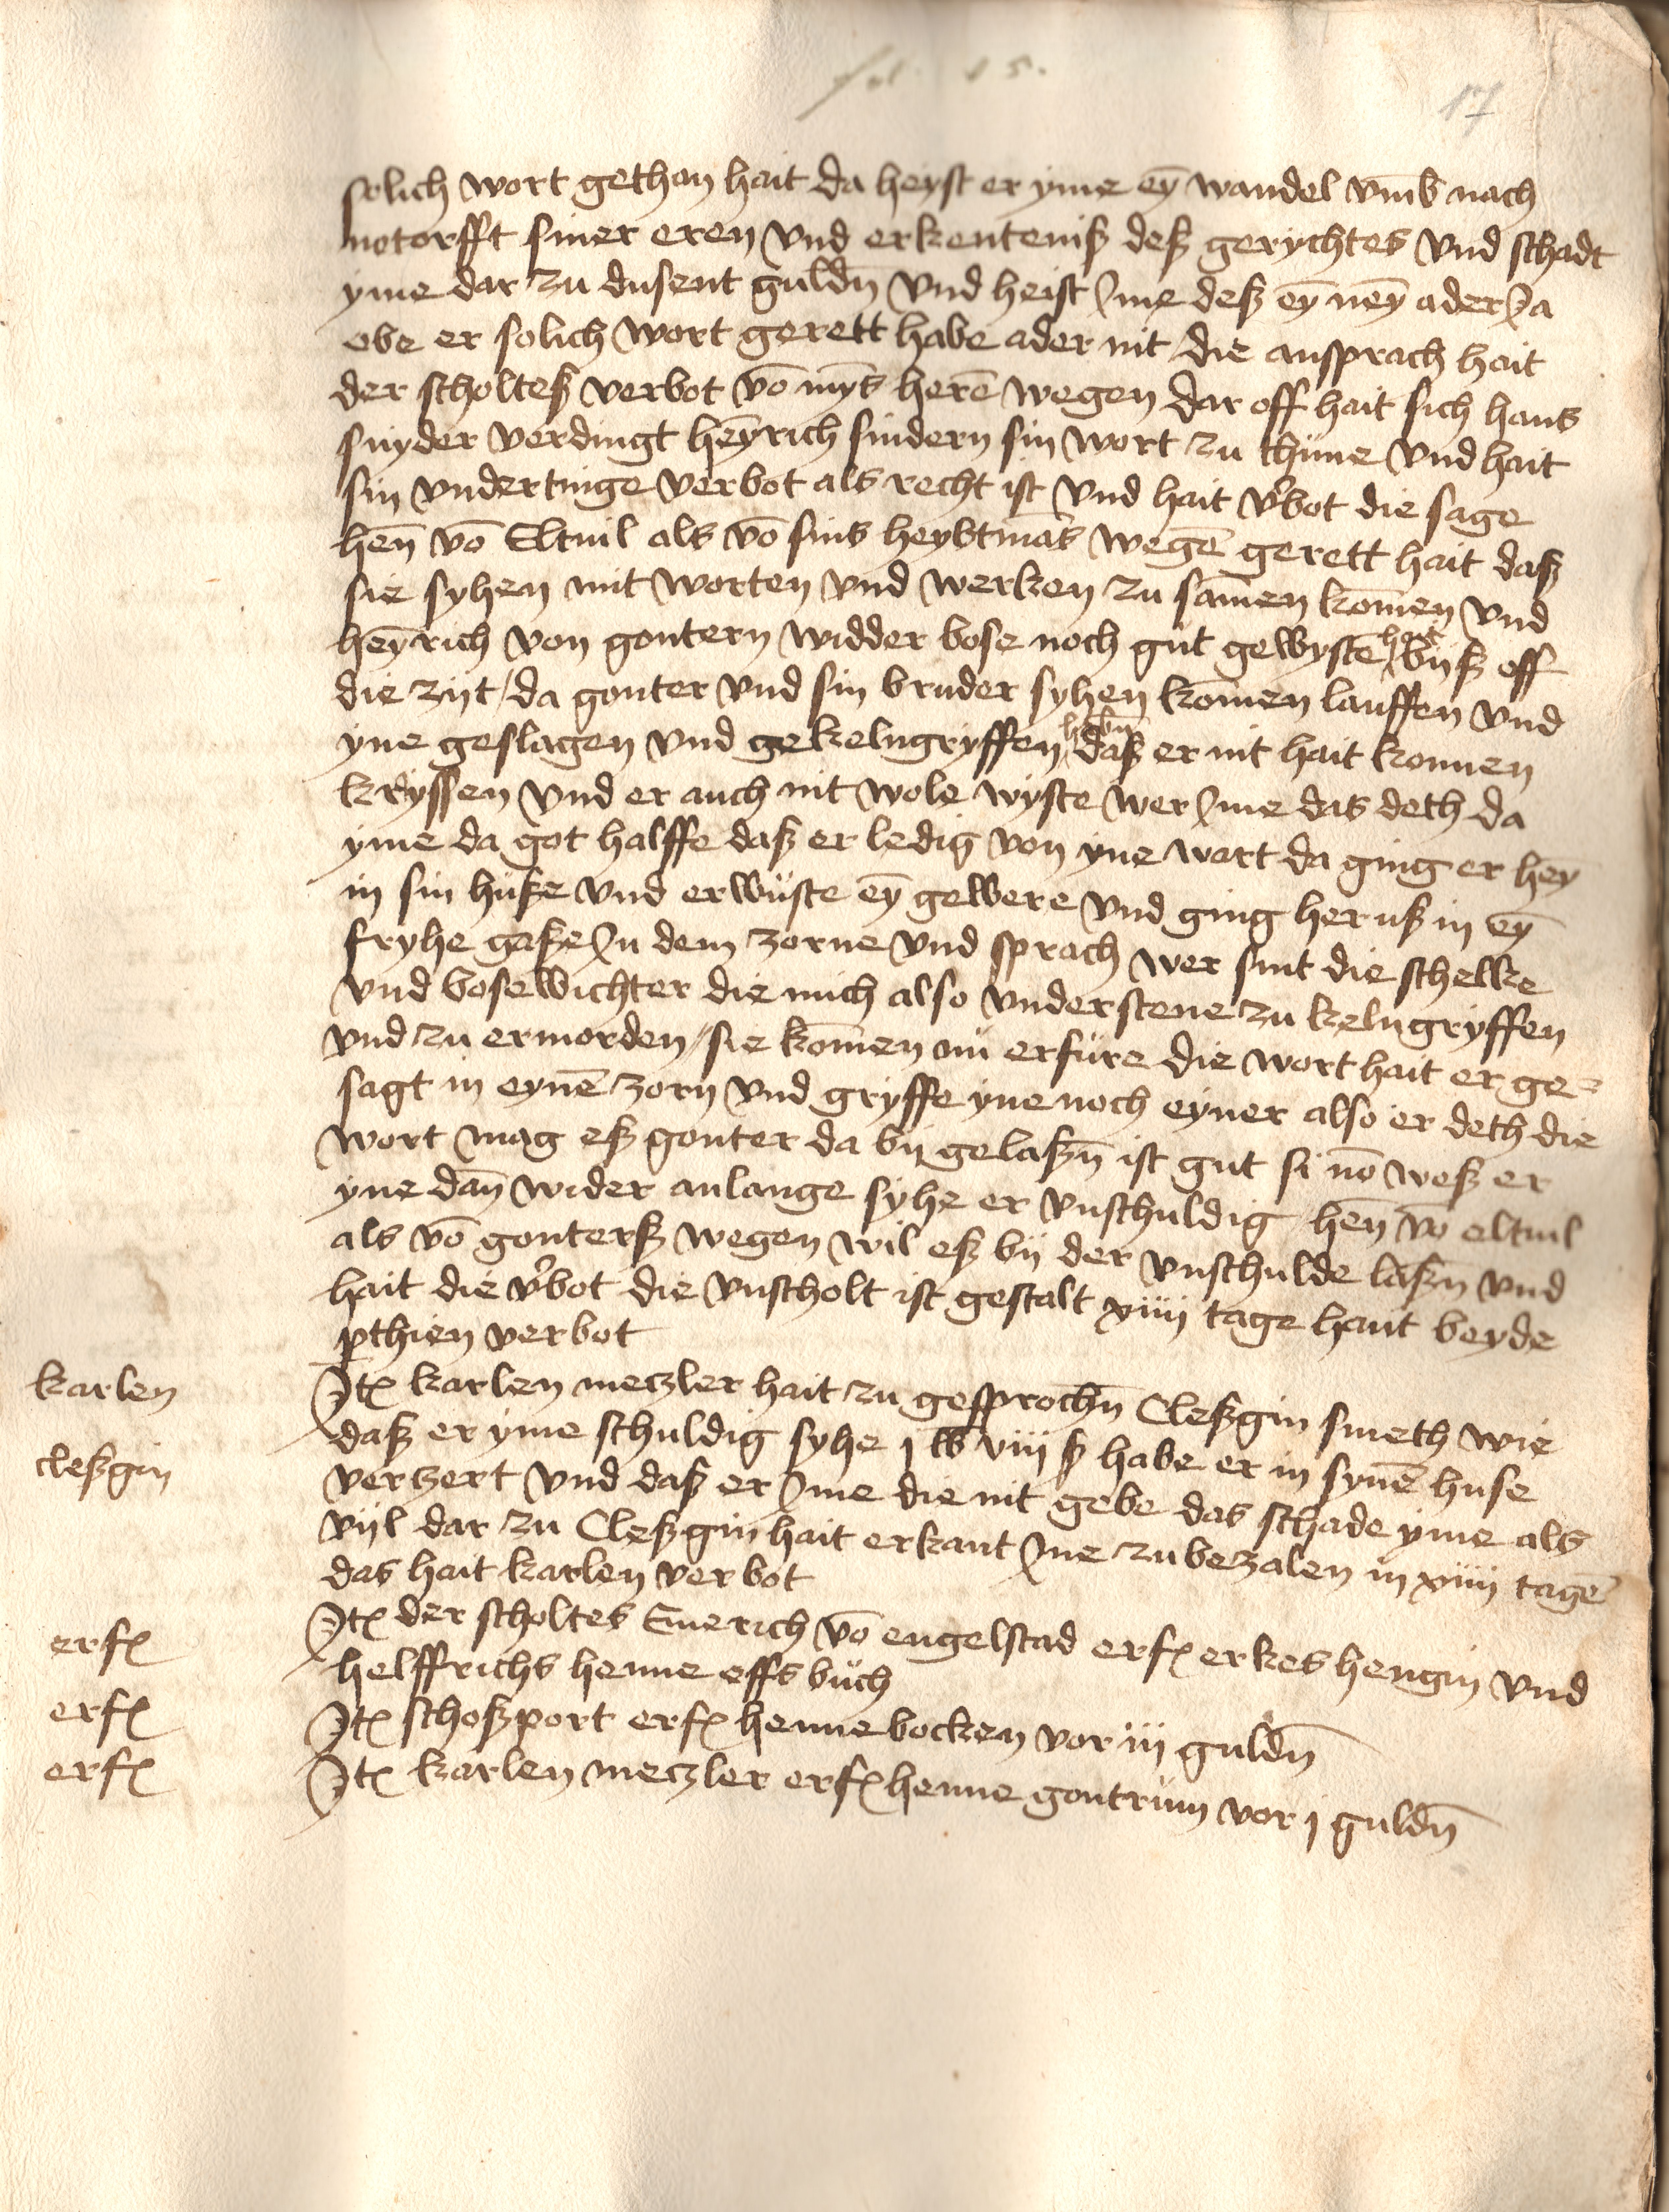 fol. 15.
17
solich wort gethan hait da heyst er yme ey̅ wandel vm̅b nach
notorfft siner eren vnd erkenteniß deß gerychtes vnd schadt
yme dar zu dusent guldn̅ vnd heist Ime deß ey̅ ney̅ ader Ja
obe er solich wort gerett habe ader nit / die ansprach hait
der scholteß verbot vo̅ myns here̅ wegen dar off hait sich hans
snyder verdingt heyrich sindern sin wort zu thüne vnd hait
sin vndertinge verbot als recht ist vnd hait v'bot die sage
hen̅ vo̅ Eltuil als vo̅ sins heybtma̅s wege̅ gerett hait daß
sie syhen mit worten vnd werken zu samen kom̅en vnd
heyrich von gontern widder bose noch gut gewyste̅ hait biß off
die zijt / da gonter vnd sin bruder syhen kom̅en lauffen vnd
yne geslagen vnd gekelngryffen habn̅ daß er nit hait konnen
kryssen vnd er auch nit wole wyste wer Ime das deth da
yme da got halffe daß er ledig von yne wart da ging er hey
in sin huße vnd erwüste ey̅ gewere vnd ging heruß in ey̅
fryhe gaße In dem zorne vnd sprach wer sint die schelke
vnd bosewichter die mich also vnderstene zu kelngryffen
vnd zu ermorden / sie kom̅en nü erfüre die wort hait er ge=
sagt in eyne̅ zorn vnd gryffe yne noch eyner also er deth die
wort mag eß gonter da bij gelaßn̅ ist gut si no̅ weß er
yne dan̅ wider anlange syhe er vnschuldig hen̅ vo̅ eltuil
als vo̅ gonterß wegen wil eß bij der vnschulde laßn̅ vnd
hait die v'bot die vnscholt ist gestalt xiiij tage hant beyde
pthien verbot
karlen
Itē karlen meczler hait zu gesprochn̅ Cleßgin smeth wie
daß er yme schuldig syhe j lb viij ß habe er in syne̅ huse
cleßgin
verzert vnd daß er Ime die nit gebe das schade yme als
vijl dar zu Cleßgin hait erkant Ime zu bezalen in xiiij tage̅
das hait karlen verbot
erfē
Itē der scholtes Emerich vo̅ engelstad erfē erkes hengin vnd
helffrichs henne offs buch
erfē
Itē schoßport erfē henne bocken vor iij guldn̅
erfē
Itē karlen meczler erfē henne gontrüm vor j guldn̅